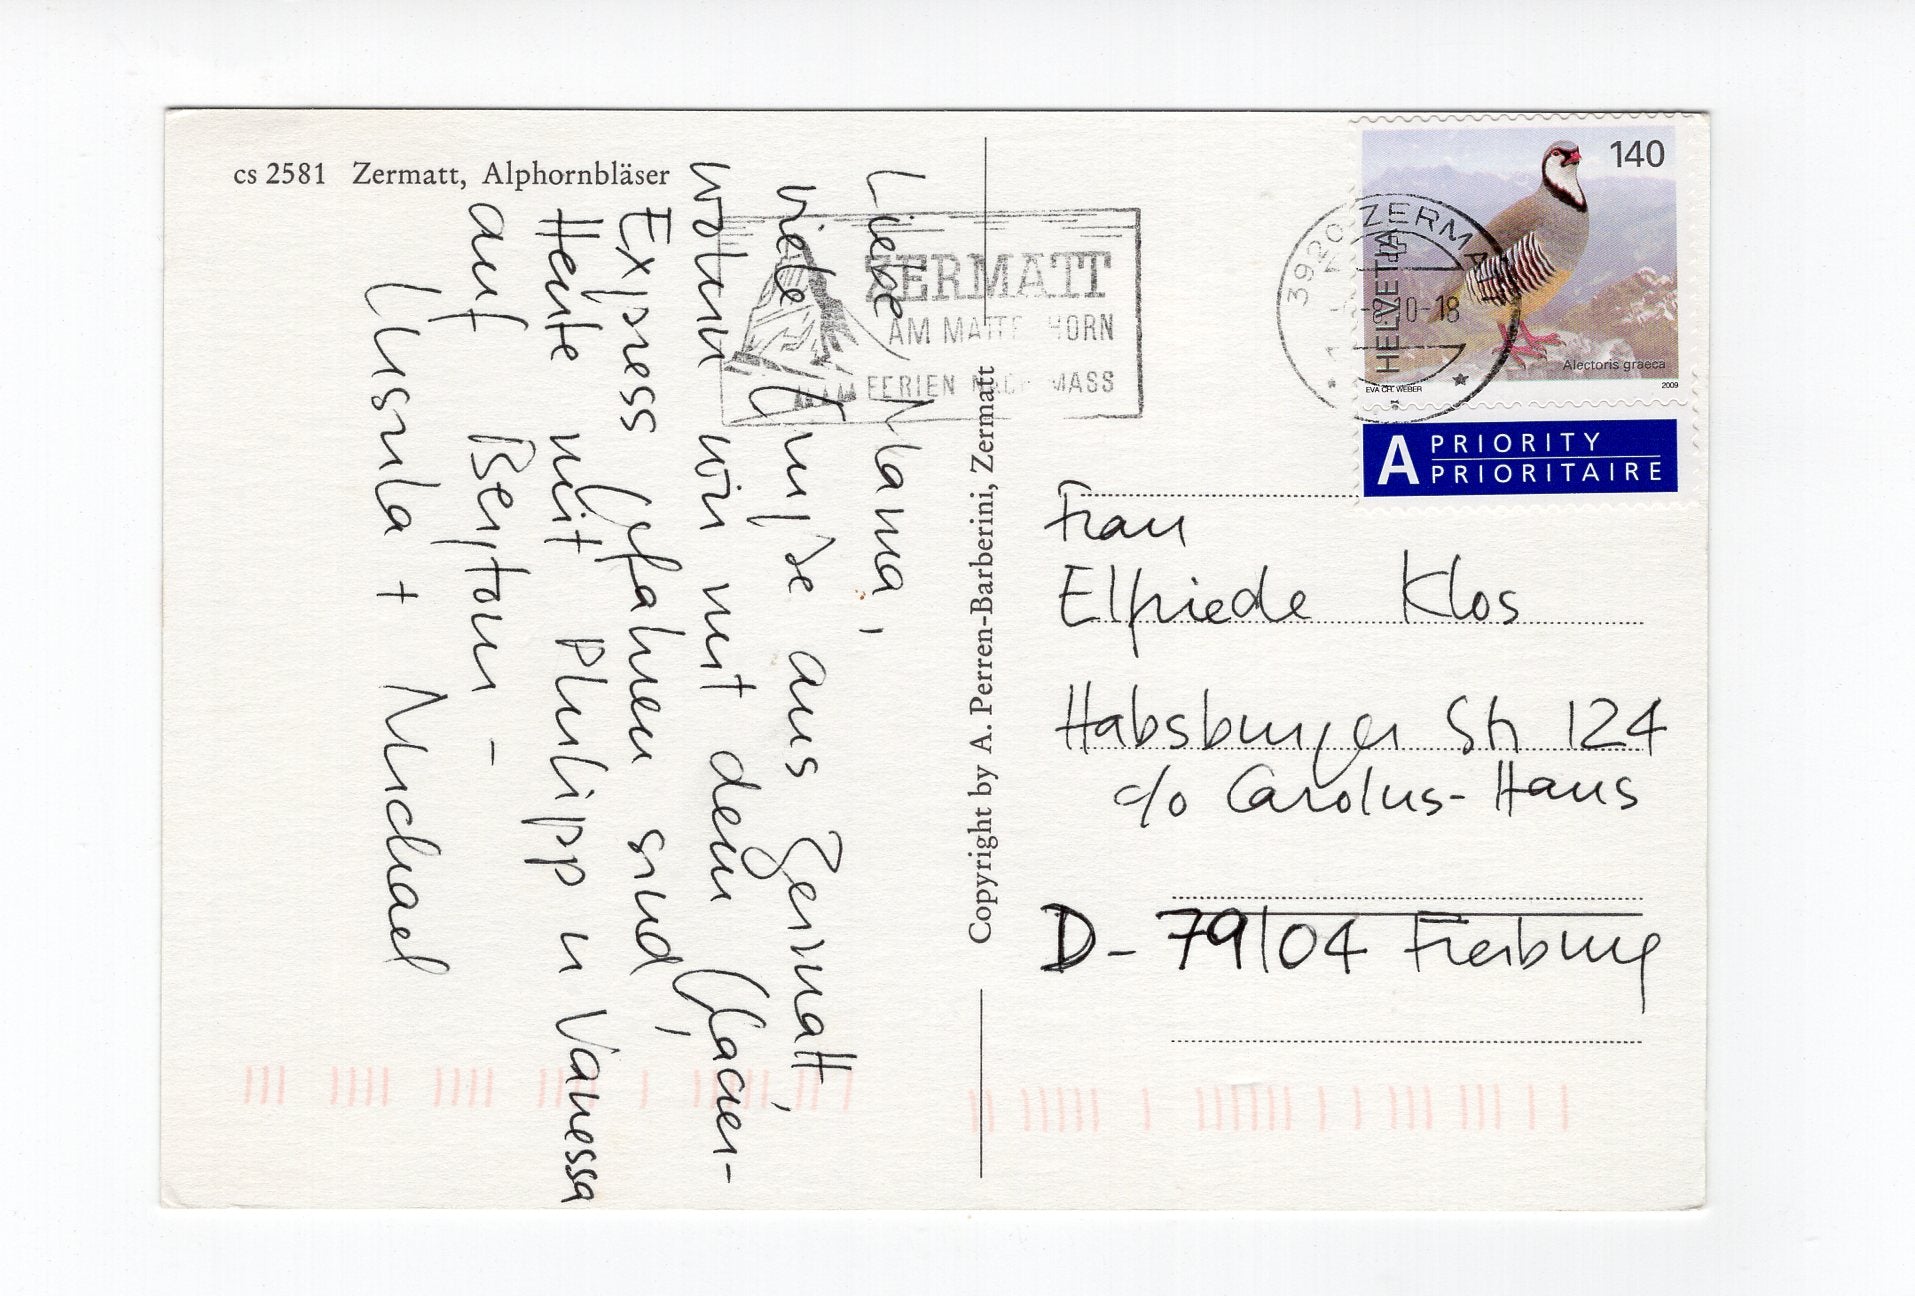 cs 2581 Zermatt, Alphornbläser
Liebe Mama,
viele Grüße aus Zermatt,
wohin wir mit dem Glacier-
Express gefahren sind,
Heute mit Philipp u Vanessa
auf Bergtour –
Ursula + Michael
ZERMATT
AM MATTERHORN
FERIEN NACH MASS
Copyright by A. Perren-Barberini, Zermatt
3920 ZERMATT
10-18
140
HELVETIA
Alectoris graeca
EVA CH. WEBER
2009
A PRIORITY
PRIORITAIRE
Frau
Elfriede Klos
Habsburger Str 124
c/o Carolus-Haus
D-79104 Freiburg